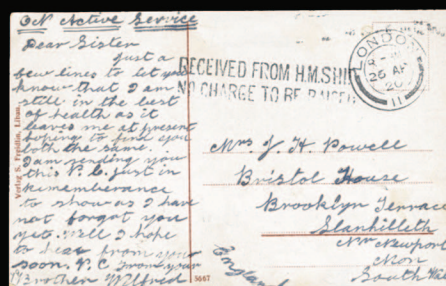 ON Active Service
Dear Sister
Just a
few lines to let you
know that I am
still in the best
of health as it
leaves me at present
hoping to find you
both the same.
I am sending you
this P. C. just in
rememberance
to show as I have
not forgot you
yet. Well I hope
to hear from you
soon. P. C. from your
Brother Wilfred
Verlag S. Fränklin, Libau.
5667
RECEIVED FROM H.M. SHIP
NO CHARGE TO BE RAISED
LONDON
26 AP
20
11
Mrs J. H. Powell
Bristol House
Brooklyn Terrace
Llanhilleth
Nr Newport
Mon
South
England